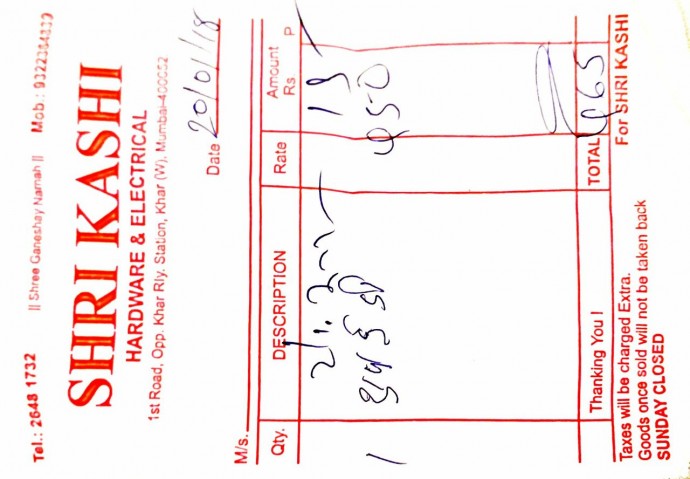 Tel.: 2648 1732 || Shree Ganeshay Namah || Mob.: 9322384839
SHRI KASHI
HARDWARE & ELECTRICAL
1st Road, Opp. Khar Rly. Station, Khar (W), Mumbai-400052
Date 20/01/18
M/s.
Qty. DESCRIPTION Rate Amount
Rs P
1
450
Thanking You ! TOTAL 465
Taxes will be charged Extra. For SHRI KASHI
Goods once sold will not be taken back
SUNDAY CLOSED